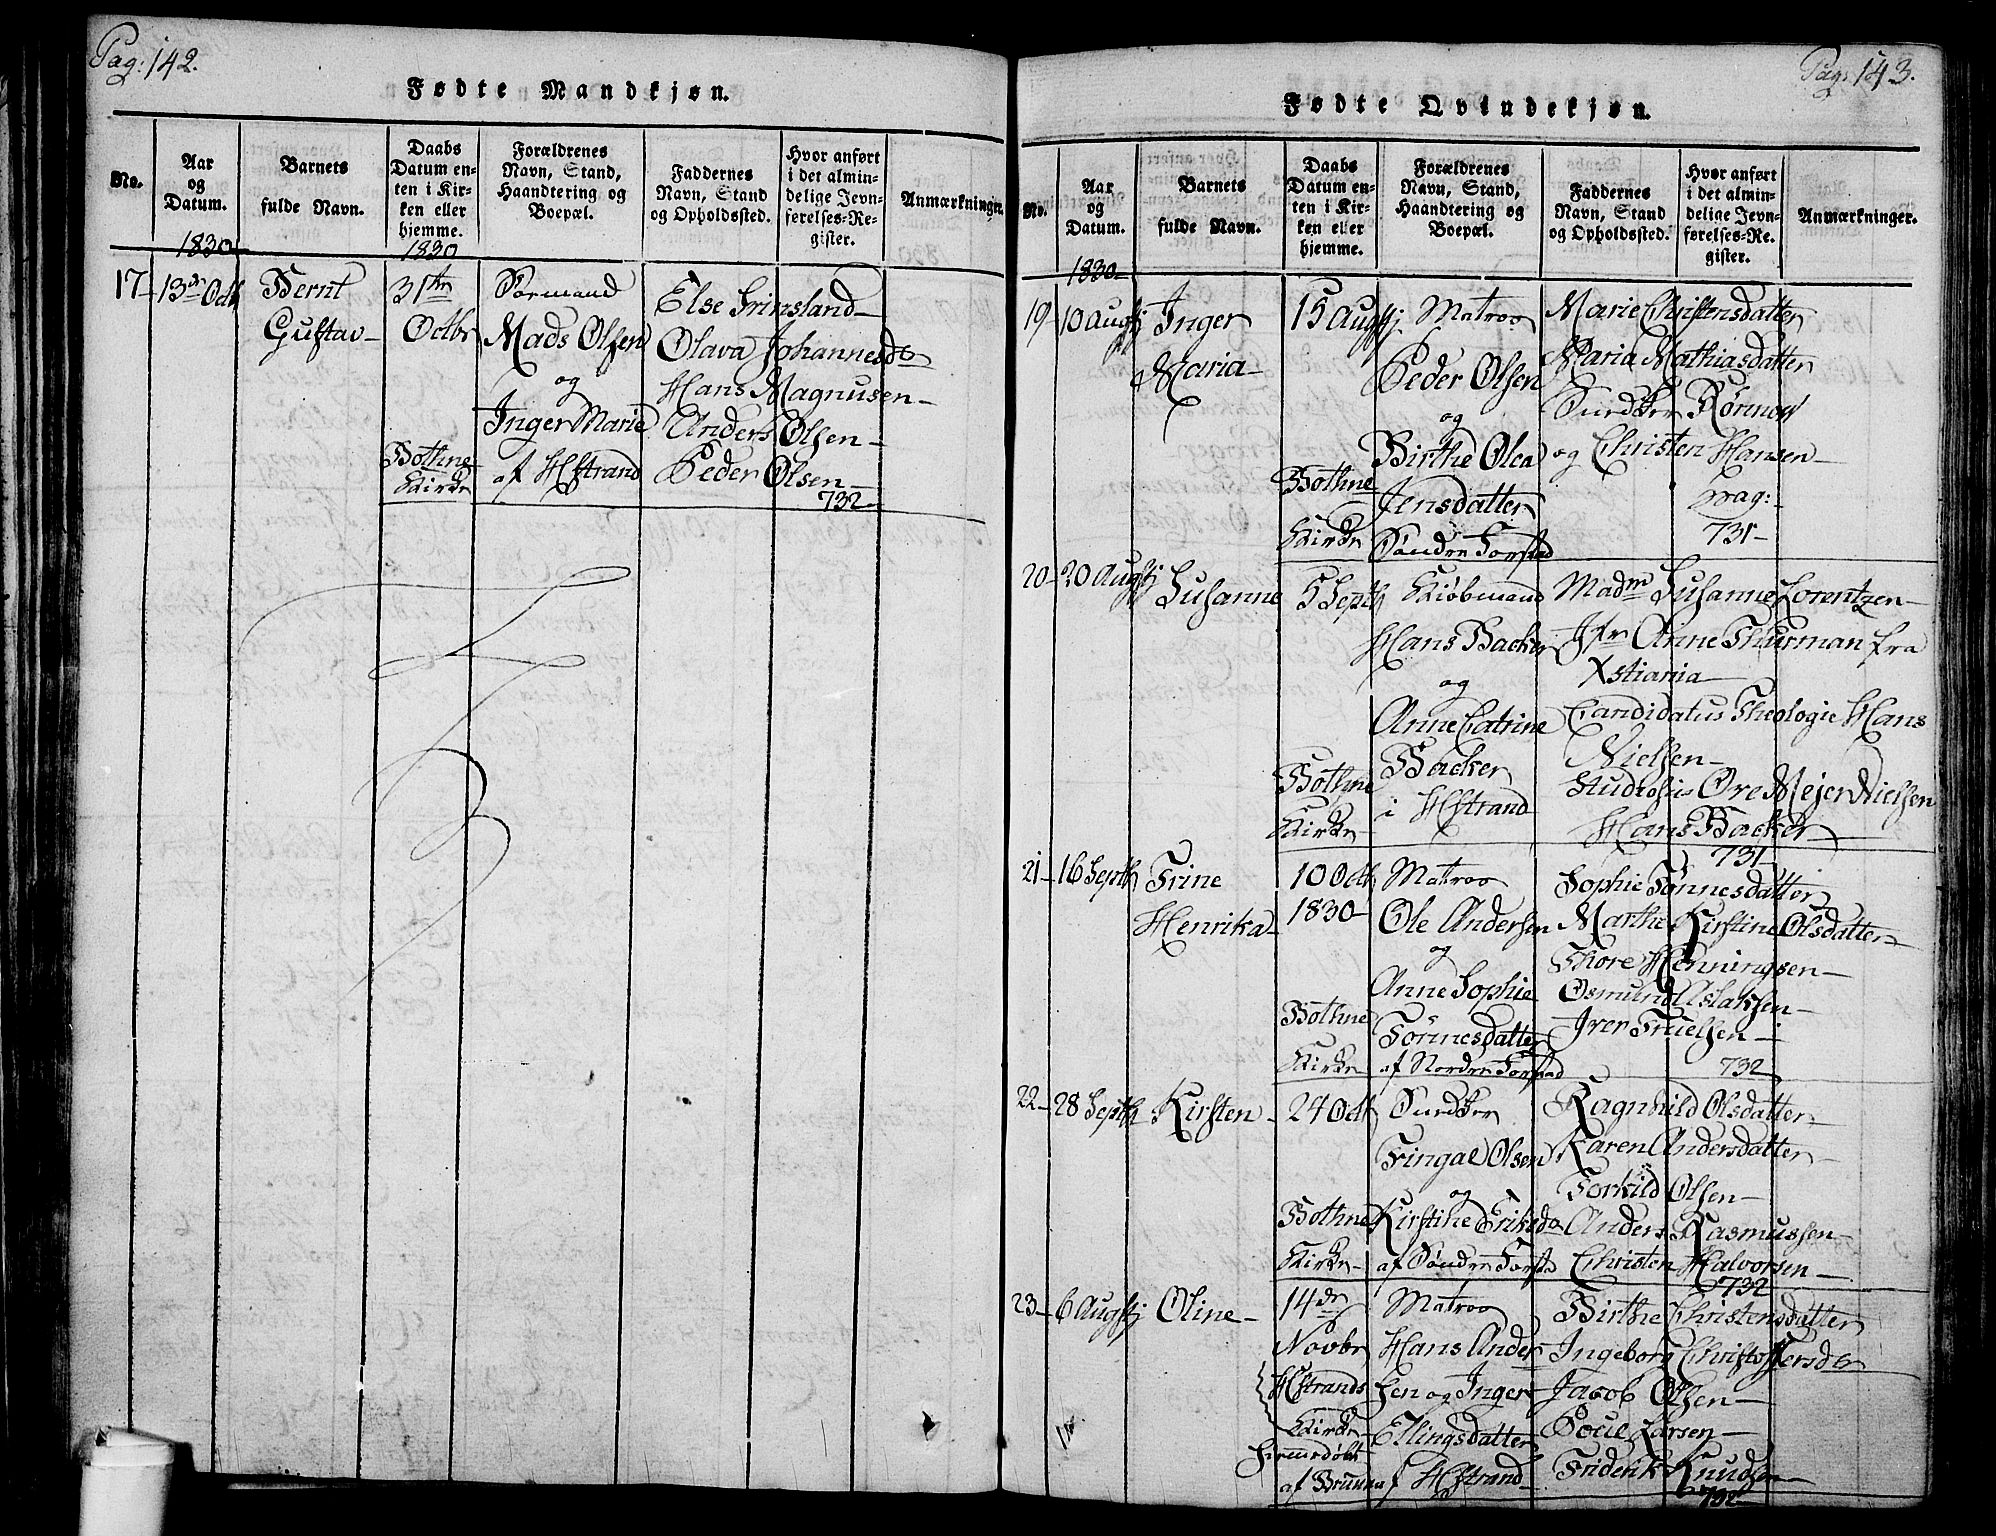 Pag: 142.
Fødte Mandkjøn.
No.
Aar
og
Datum.
Barnets
fulde Navn.
Daabs
Datum en-
ten i Kir-
ken eller
hjemme.
Forældrenes
Navn, Stand,
Haandtering og
Boepæl.
Faddernes
Navn, Stand
og Opholdssted.
Hvor anført
i det almin-
delige Jevn-
førelses-Re-
gister.
Anmærkninger.
1830
1830
17
13de Octb
Bernt
Gustav
31te
Octbr
Bothne
Kirke
Sørmand
Mads Olsen
og
Inger Marie
af HStrand
Else Grimsland
Olava Johannesdr
Hans Magnusen
Anders Olsen
Peder Olsen
732
Pag: 143.
Fødte Qvindekjøn.
No.
Aar
og
Datum.
Barnets
fulde Navn.
Daabs
Datum en-
ten i Kir-
ken eller
hjemme.
Forældrenes
Navn, Stand,
Haandtering og
Boepæl.
Faddernes
Navn, Stand
og Opholdssted.
Hvor anført
i det almin-
delige Jevn-
førelses-Re-
gister.
Anmærkninger.
1830
19
10 Augstj
Inger
Maria
15 Augstj
Bothne
Kirke
Matros
Peder Olsen
og
Birthe Olea
Jensdatter
Søndre Forstad
Marie Christensdatter
Maria Mathiasdatter
Rörmoe
og Christen Hansen
731
20
20 Augstj
Susanne
5 Septb
Bothne
Kirke
Kiøbmand
Hans Backer
og
Anne Catrine
Backer
i HStrand
Madm Susanne Lorentzen
Jfr Anne Thurman fra
Xstiania
Candidatus Theologie Hans
Nielsen
Studiosus Ove Mejer Nielsen
Hans Backer
731
21
16 Septb
Trine
Henrika
10 Octb
1830
Bothne
Kirke
Matros
Ole Andersen
og
Anne Sophie
Tönnesdatter
af Nordre Forstad
Sophie Tønnesdatter
Marthe Kirstine Olsdatter
Thore Henningsen
Osmund Aslaksen
Iver Truelsen
732
22
28 Septb
Kirsten
24 Octb
Bothne
Kirke
Fingal Olsen
og
Kirstine Eriksda
af Søndre Forsta
Ragnhild Olsdatter
Karen Andersdatter
Torkild Olsen
Anders Rasmussen
Christen Halvorsen
732
23
6 Augstj
Oline
14de
Novbr
HStrands
Kirke
Hiemedøbt
af Bruun
Matros
Hans Ander
sen og Inger
Ellingsdatter
af HStrand
Birthe Christensdatter
Ingeborg Christoffersdr
Jacob Olsen
Poul Larsen
Friderik Knudsen
732